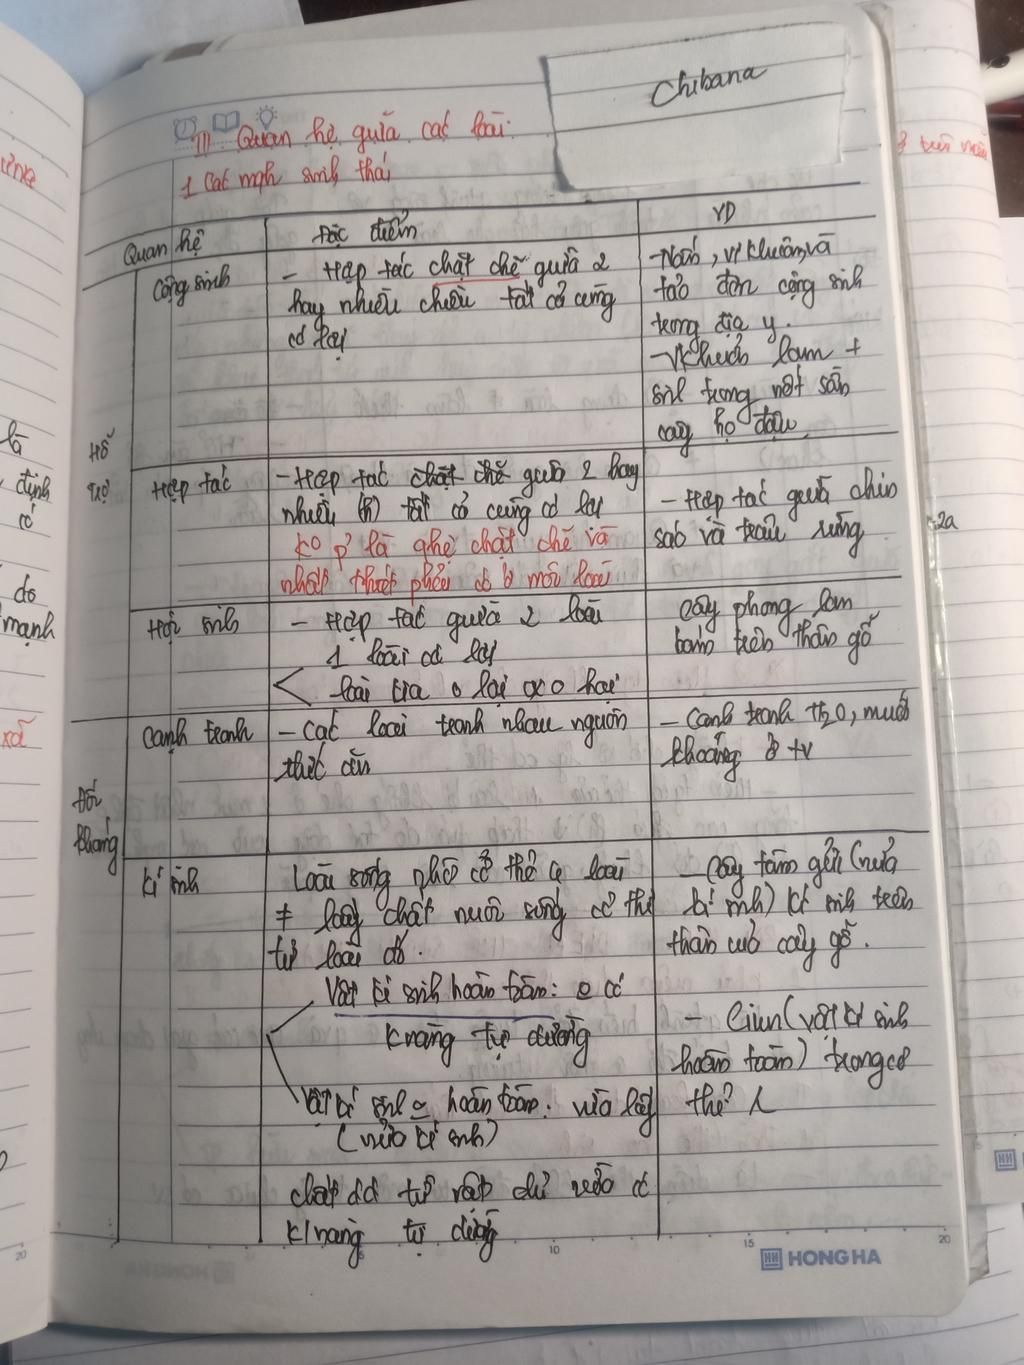 Chibana
III Quan hệ giữa các loài:
1 Các mqh sinh thái
Quan hệ
Đặc điểm
VD
Hỗ
trợ
Cộng sinh
- Hợp tác chặt chẽ giữa 2
hay nhiều chiều tất cả cùng
có lợi
- Nấm, vi khuẩn, và
tảo đơn cộng sinh
trong địa y.
- Vk huẩn lam +
sinh trong nốt sần
cây họ đậu.
Hợp tác
- Hợp tác chặt chẽ giữa 2 hay
nhiều tất cả cùng có lợi
ko p là qhệ chặt chẽ và
nhất thiết phải có ở mỗi loài
- Hợp tác giữa chim
sáo và trâu rừng
Hội sinh
- Hợp tác giữa 2 loài
1 loài có lợi
loài kia o lợi o hại
cây phong lan
bám trên thân gỗ
Đối
kháng
cạnh tranh
- Các loài tranh nhau nguồn
thức ăn
- Canh tranh H2O, muối
khoáng ở tv
kí sinh
Loài sống nhờ cơ thể loài
≠ lấy chất nuôi sống cơ thể
từ loài đó.
Vật kí sinh hoàn toàn: o có
k năng tự dưỡng
Vật kí sinh o hoàn toàn: vừa lấy
(nửa kí sinh)
chất dd từ vật chủ vừa có
k/năng tự dưỡng
- Cây tầm gửi (nửa
kí sinh) kí sinh trên
thân cây gỗ.
- Giun (vật kí sinh
hoàn toàn) trong cơ
thể
là
định
có
do
mạnh
2a
10
15
20
20
HH HONG HA
HH